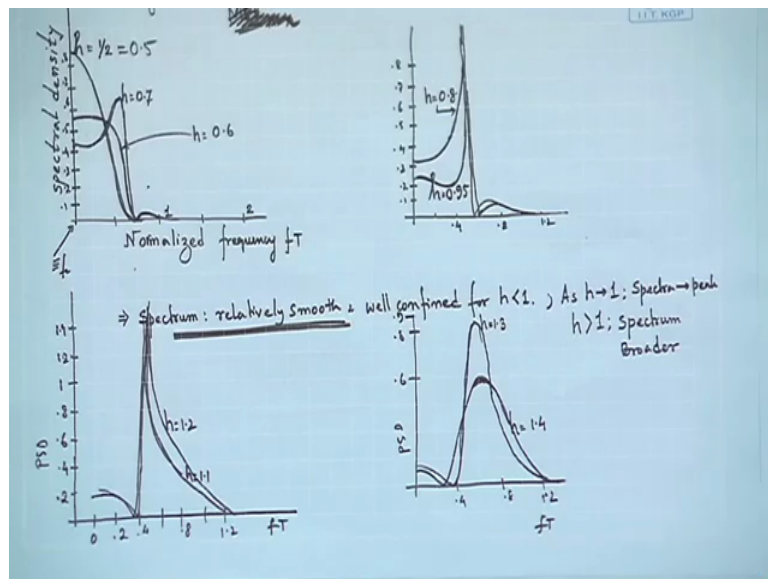 IIT KGP
h = 1/2 = 0.5
h=0.7
h= 0.6
Spectral density
.5
.4
.2
.1
1
2
Normalized frequency fT
.8
.7
.6
.5
.4
.3
.2
.1
h=0.8
h=0.95
.4
.8
1.2
⇒ Spectrum: relatively smooth & well confined for h<1. ; As h→1; Spectra→peak
h>1; Spectrum
Broader
1.4
1.2
1
.8
.6
.4
.2
PSD
h=1.2
h=1.1
0 .2 .4 .8 1.2 fT
.9
.8
.6
PSD
h=1.3
h= 1.4
.4 .8 1.2
fT